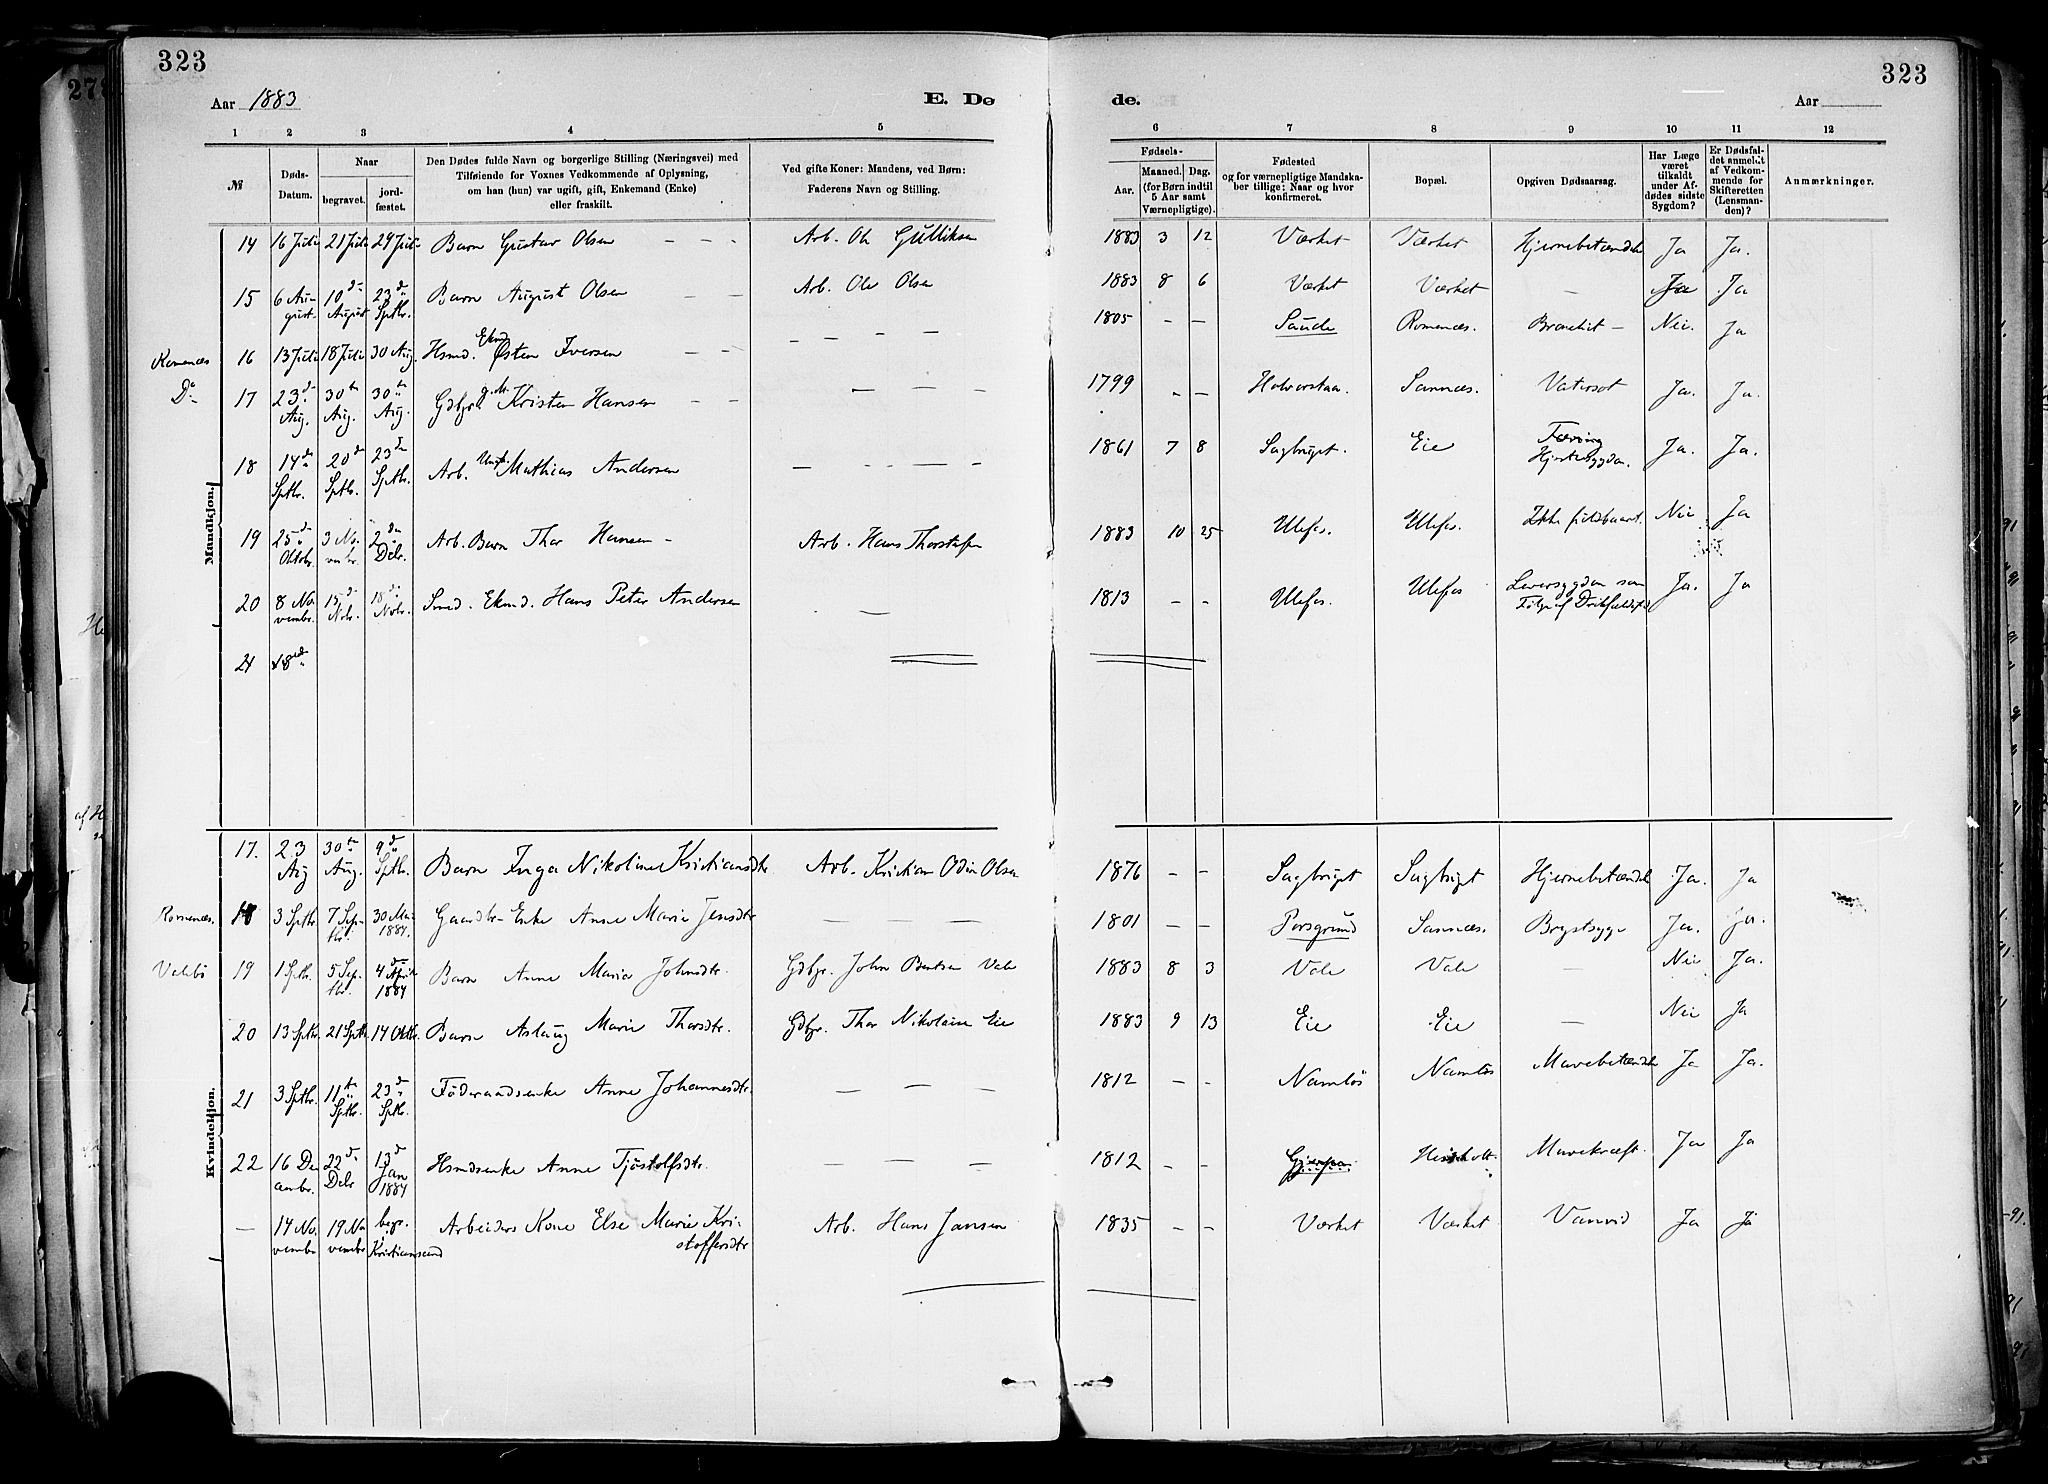 323
323
Aar 1883
E. Dø
de.
Aar
1 2 3 4 5 6 7 8 9 10 11 12
№
Døds-Datum.
Naar
begravet.
jord-fæstet.
Den Dødes fulde Navn og borgerlige Stilling (Næringsvei) med
Tilføiende for Voxnes Vedkommende af Oplysning,
om han (hun) var ugift, gift, Enkemand (Enke)
eller fraskilt.
Ved gifte Koner: Mandens, ved Børn:
Faderens Navn og Stilling.
Fødsels-
Aar.
Maaned. Dag.
(for Børn indtil
5 Aar samt
Værnepligtige).
Fødested
og for værnepligtige Mandska-
ber tillige: Naar og hvor
konfirmeret.
Bopæl.
Opgiven Dødsaarsag.
Har Læge
været
tilkaldt
under Af-
dødes sidste
Sygdom?
Er Dødsfal-
det anmeldt
af Vedkom-
mende for
Skifteretten
(Lensman-
den)?
Anmærkninger.
Mandkjøn.
14 16 Juli 21 Juli 29 Juli Barn Gustav Olsen — - - Arb. Ole Gulliksen 1883 3 12 Værket Værket Hjernebetændelse Ja Ja.
15 6 August 10de August 23de Sptbr. Barn August Olsen — — Arb. Ole Olsen 1883 8 6 Værket Værket — Ja Ja
Romenæs 16 13 Juli 18 Juli 30 Aug. Hsmd. Ekmd Østen Iversen — — - - — — 1805 — — Saude Romenæs. Bronchit — Nei. Ja
Do 17 23d Aug. 30te Aug. 30te Aug. Gdbgr. g. M. Kristen Hansen — — — — 1799 - - Holverstaa. Sannæs. Vatersot Ja. Ja.
18 14de Sptbr. 20de Sptbr. 23de Sptbr. Arb. Ungk. Mathias Andersen — — — 1861 7 8 Sagbruget. Eie Tæring Hjertesygdom. Ja. Ja.
19 25de Oktobr. 3 November 2den Debr. Arb. Barn Thor Hansen - Arb. Hans Thorstensen 1883 10 25 Ulefos. Ulefos. Ikke fuldbaaret. Nei Ja
20 8 November 15de Nobr. 18de Nobr. Smed. Ekmd. Hans Peter Andersen — 1813 - - Ulefos. Ulefos Leversygdom som Følge af Drikfældighed Ja. Ja
21 18de
Kvindekjøn.
17. 23 Aug 30te Aug. 9de Sptbr. Barn Inga Nikoline Kristiansdtr Arb. Kristian Odin Olsen 1876 — — Sagbruget Sagbruget Hjernebetændelse Ja. Ja
Romenæs. 18 3 Sptbr 7 Septbr. 30 Mai 1884. Gaardbr- Enke Anne Marie Jensdtr — — — 1801 — — Porsgrund Sannæs. Brystsyge Ja. Ja.
Valebø 19 1 Sptbr. 5 Septbr. 4de April 1884 Barn Anne Maria Johnsdtr. Gdbgr. John Bentsen Vale 1883 8 3 Vale Vale — Nei Ja.
20 13 Sptbr. 21 Sptbr 14 Oktbr. Barn Aslaug Marie Thorsdtr. Gdbgr. Thor Nikolaisen Eie 1883 9 13 Eie Eie — Nei Ja
21 3 Sptbr. 11te Sptbr. 23de Sptbr. Föderaadsenke Anne Johannesdtr. — — — 1812 - - Namløs Namløs Mavebetændelse Ja Ja.
22 16 Decembr. 22de Debr 13de Jan 1884 Hsmdsenke Anne Tjöstolfsdtr. — — — 1812 - - Gjerpen Mavekræft. Ja Ja
— 14 Novembr 19 Novembr begr. Kristianssand Arbeiders Kone Else Marie Kristoffersdtr Arb. Hans Jansen 1835 - - Værket Værket Vanvid Ja Ja